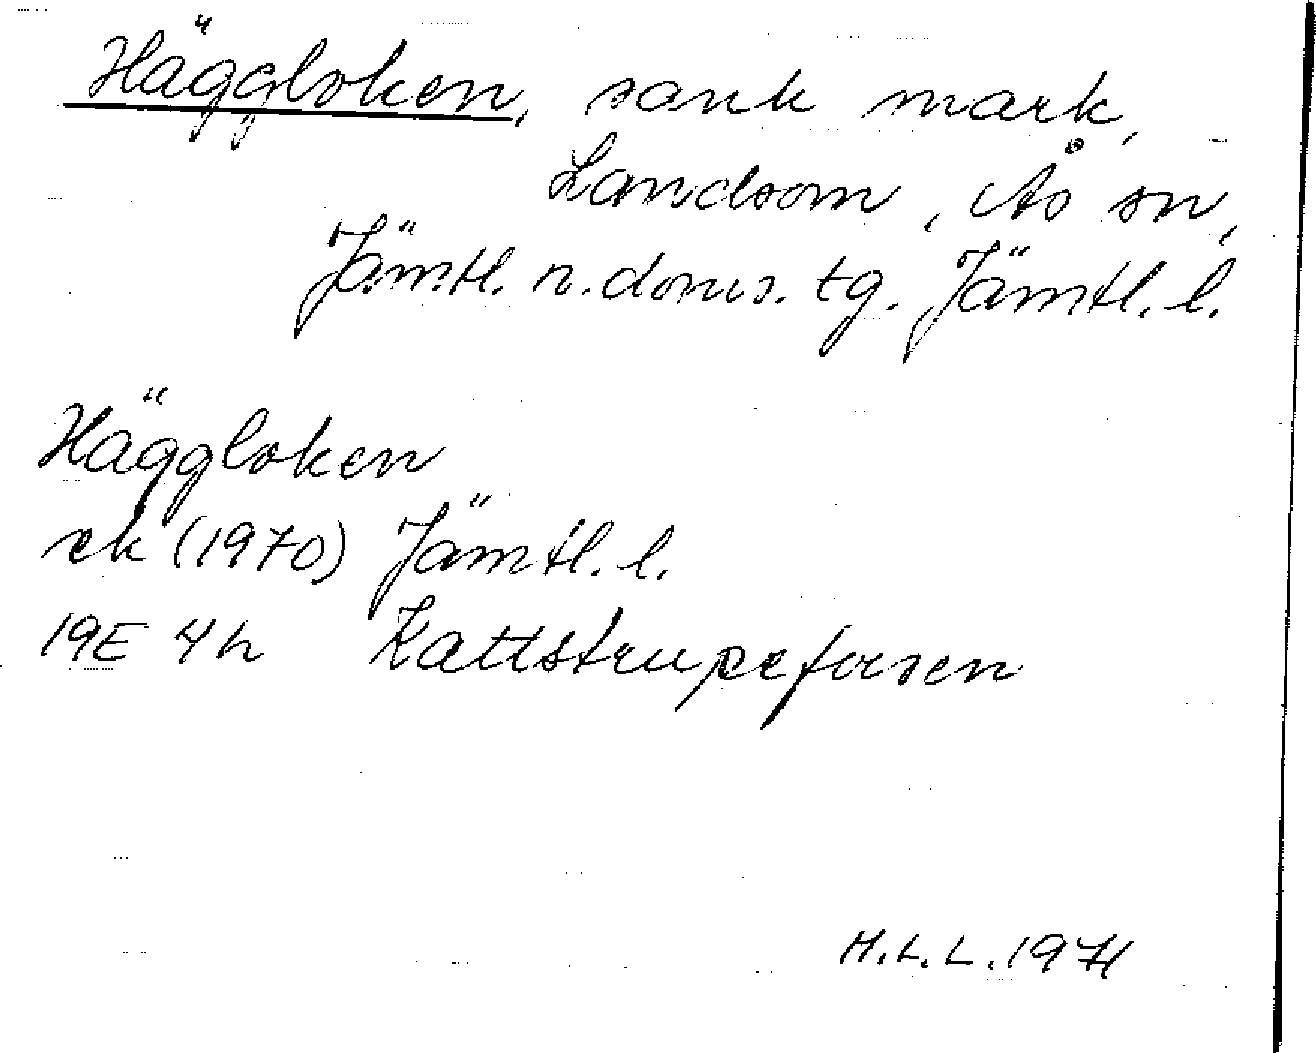 Häggloken, sank mark,
Landsom, Ås sn,
Jämtl. n. doms. tg. Jämtl. l.
Häggloken
ek (1970) Jämtl. l.
19E 4h Kattstrupeforsen
H.L.L. 1971